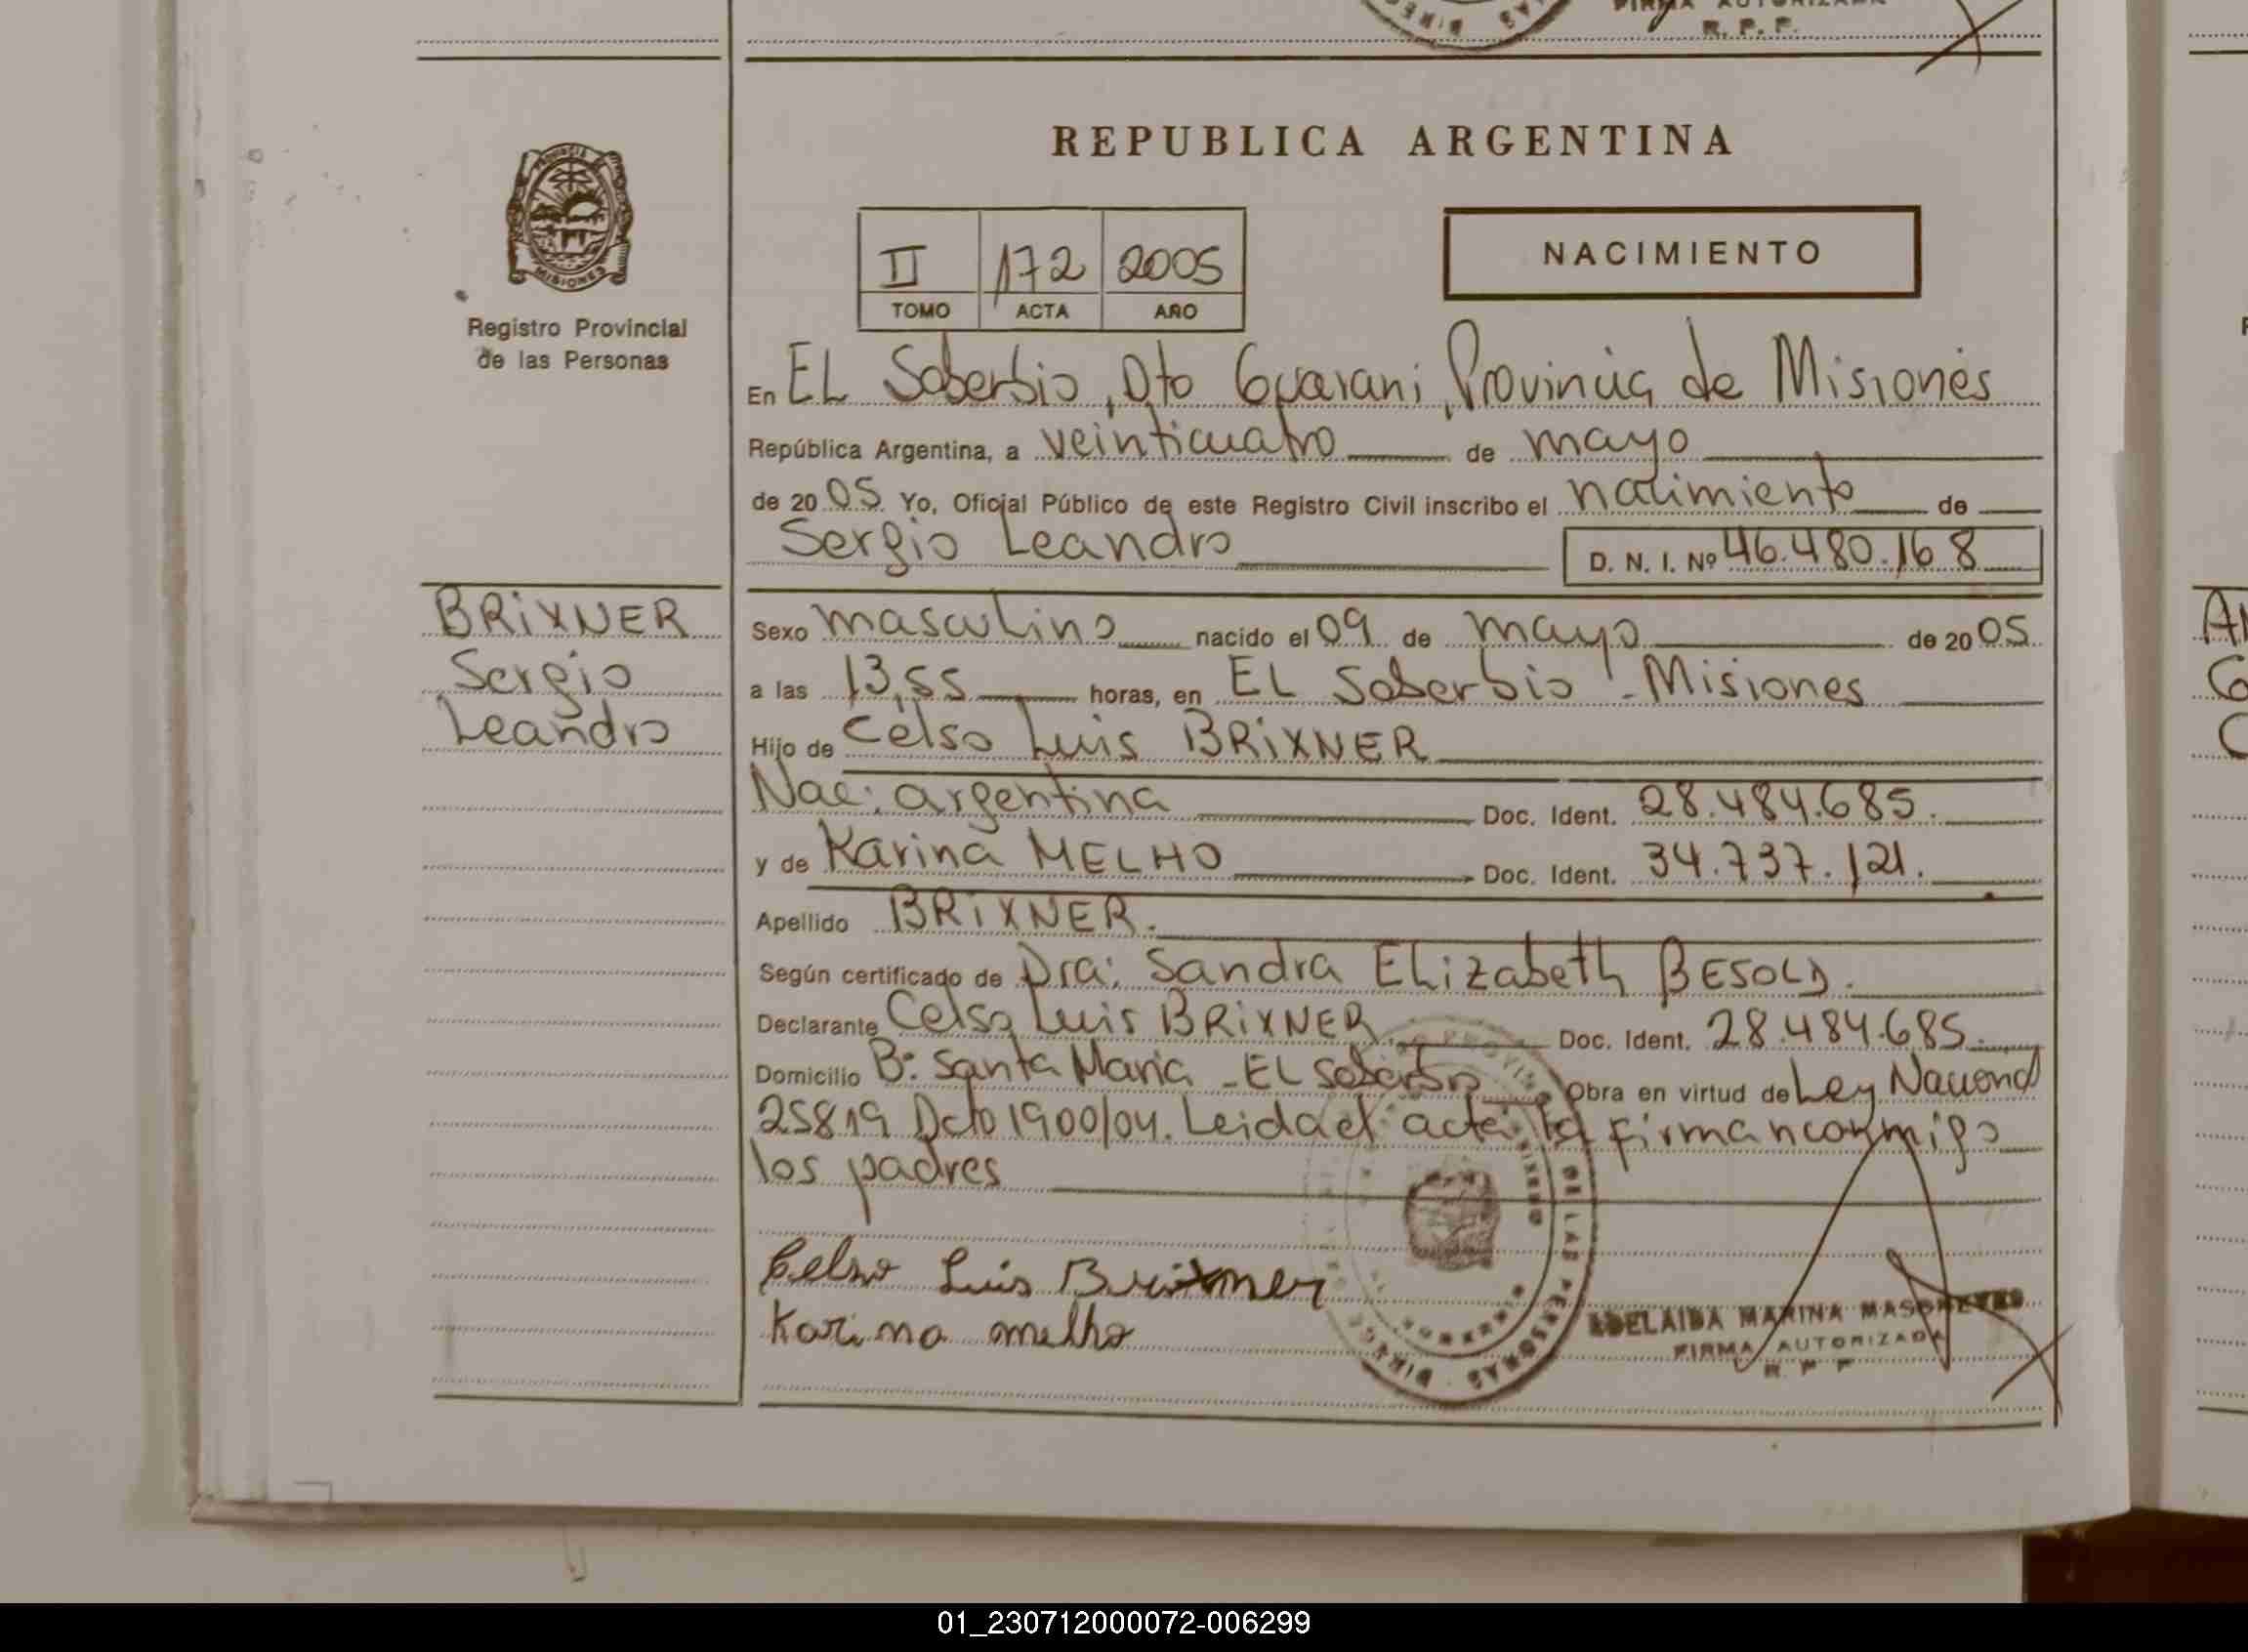 FIRMA AUTORIZADA
R. P. P.
REPUBLICA ARGENTINA
PROVINCIA
MISIONES
Registro Provincial
de las Personas
II 172 2005
TOMO ACTA AÑO
NACIMIENTO
En EL Soberbio, Dto Guarani, Provincia de Misiones
República Argentina, a veinticuatro de mayo
de 2005 Yo, Oficial Público de este Registro Civil inscribo el nacimiento de
Sergio Leandro D. N. I. Nº 46.480.168
BRIXNER
Sergio
Leandro
Sexo masculino nacido el 09 de mayo de 2005
a las 13,55 horas, en EL Soberbio - Misiones
Hijo de Celso Luis BRIXNER
Nac: argentina Doc. Ident. 28.484.685.
y de Karina MELHO Doc. Ident. 34.737.121.
Apellido BRIXNER.
Según certificado de Dra: Sandra Elizabeth BESOLD.
Declarante Celso Luis BRIXNER Doc. Ident. 28.484.685.
Domicilio B: Santa Maria - EL Soberbio Obra en virtud de Ley Nacional
25819 Dcto 1900/04. Leida el acta la firman conmigo
los padres
Celso Luis Brixner
Karina melho
DE LAS PERSONAS
ADELAIDA MARINA
FIRMA AUTORIZADA
01_230712000072-006299